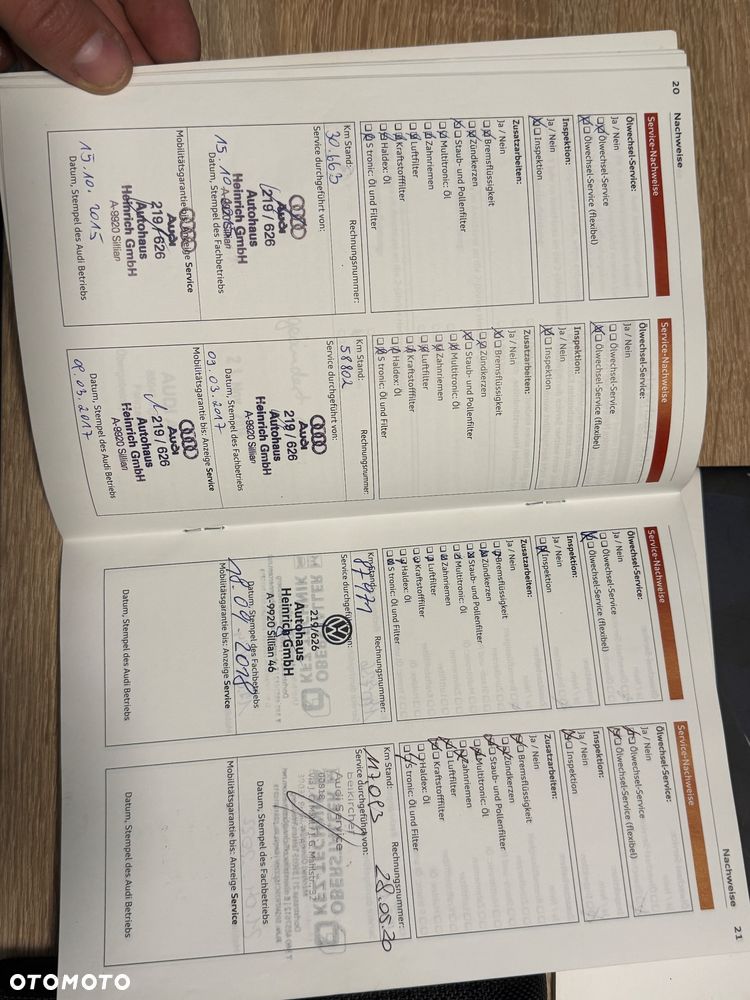 20
Nachweise
Service-Nachweise
Ölwechsel-Service:
Ja / Nein
Ölwechsel-Service
Ölwechsel-Service (flexibel)
Inspektion:
Ja / Nein
Inspektion
Zusatzarbeiten:
Ja / Nein
Bremsflüssigkeit
Zündkerzen
Staub- und Pollenfilter
Multitronic: Öl
Zahnriemen
Luftfilter
Kraftstofffilter
Haldex: Öl
S tronic: Öl und Filter
Km Stand:
Rechnungsnummer:
30.663
Service durchgeführt von:
Audi
219 / 626
Autohaus
Heinrich GmbH
A-9920 Sillian
15.10.2015
Datum, Stempel des Fachbetriebs
Mobilitätsgarantie bis: Anzeige Service
Audi
219 / 626
Autohaus
Heinrich GmbH
A-9920 Sillian
15.10.2015
Datum, Stempel des Audi Betriebs
Service-Nachweise
Ölwechsel-Service:
Ja / Nein
Ölwechsel-Service
Ölwechsel-Service (flexibel)
Inspektion:
Ja / Nein
Inspektion
Zusatzarbeiten:
Ja / Nein
Bremsflüssigkeit
Zündkerzen
Staub- und Pollenfilter
Multitronic: Öl
Zahnriemen
Luftfilter
Kraftstofffilter
Haldex: Öl
S tronic: Öl und Filter
Km Stand:
Rechnungsnummer:
58802
Service durchgeführt von:
Audi
219 / 626
Autohaus
Heinrich GmbH
A-9920 Sillian
09.03.2017
Datum, Stempel des Fachbetriebs
Mobilitätsgarantie bis: Anzeige Service
Audi
219 / 626
Autohaus
Heinrich GmbH
A-9920 Sillian
09.03.2017
Datum, Stempel des Audi Betriebs
Service-Nachweise
Ölwechsel-Service:
Ja / Nein
Ölwechsel-Service
Ölwechsel-Service (flexibel)
Inspektion:
Ja / Nein
Inspektion
Zusatzarbeiten:
Ja / Nein
Bremsflüssigkeit
Zündkerzen
Staub- und Pollenfilter
Multitronic: Öl
Zahnriemen
Luftfilter
Kraftstofffilter
Haldex: Öl
S tronic: Öl und Filter
Km Stand:
Rechnungsnummer:
87971
Service durchgeführt von:
219/626
Autohaus
Heinrich GmbH
A-9920 Sillian 46
Datum, Stempel des Fachbetriebs
18.09.2018
Mobilitätsgarantie bis: Anzeige Service
Datum, Stempel des Audi Betriebs
Nachweise
21
Service-Nachweise
Ölwechsel-Service:
Ja / Nein
Ölwechsel-Service
Ölwechsel-Service (flexibel)
Inspektion:
Ja / Nein
Inspektion
Zusatzarbeiten:
Ja / Nein
Bremsflüssigkeit
Zündkerzen
Staub- und Pollenfilter
Multitronic: Öl
Zahnriemen
Luftfilter
Kraftstofffilter
Haldex: Öl
S tronic: Öl und Filter
Km Stand:
Rechnungsnummer:
117.093
28.05.20
Service durchgeführt von:
Audi Service
Datum, Stempel des Fachbetriebs
Mobilitätsgarantie bis: Anzeige Service
Datum, Stempel des Audi Betriebs
OTOMOTO